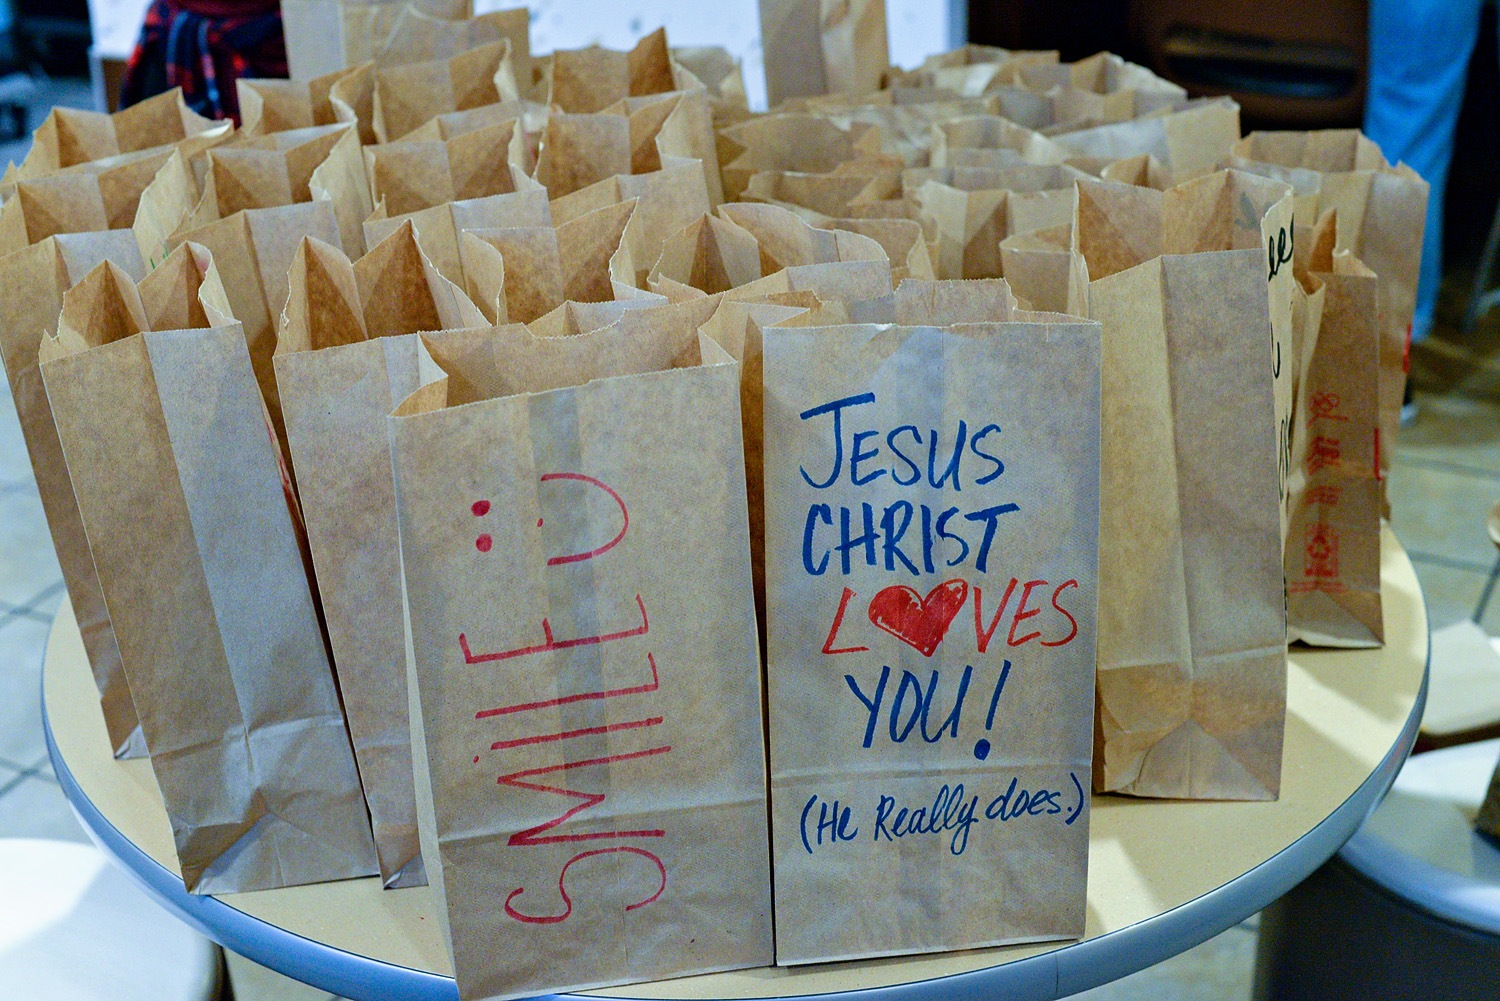 SMILE
JESUS
CHRIST
LOVES
YOU!
(He Really does.)